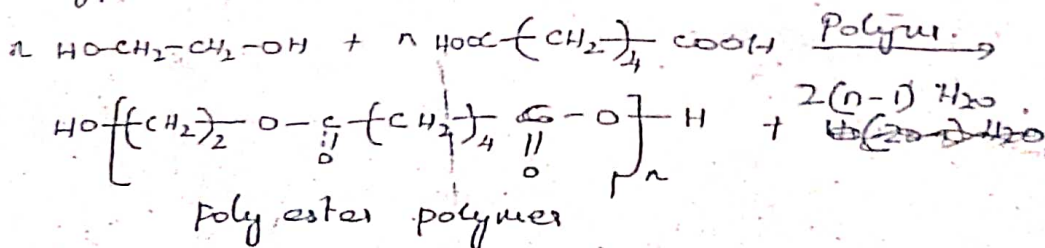 n HO-CH2-CH2-OH + n HOOC-(CH2)4-COOH Polymr.→
HO-[(CH2)2-O-C(=O)-(CH2)4-C(=O)-O]n-H + 2(n-1) H2O.
poly ester polymer